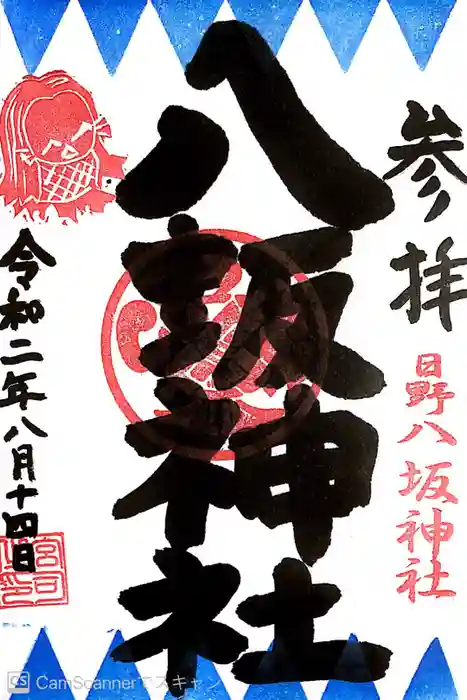 参拝
日野八坂神社
八坂神社
令和二年八月十四日
CS CamScannerでスキャン